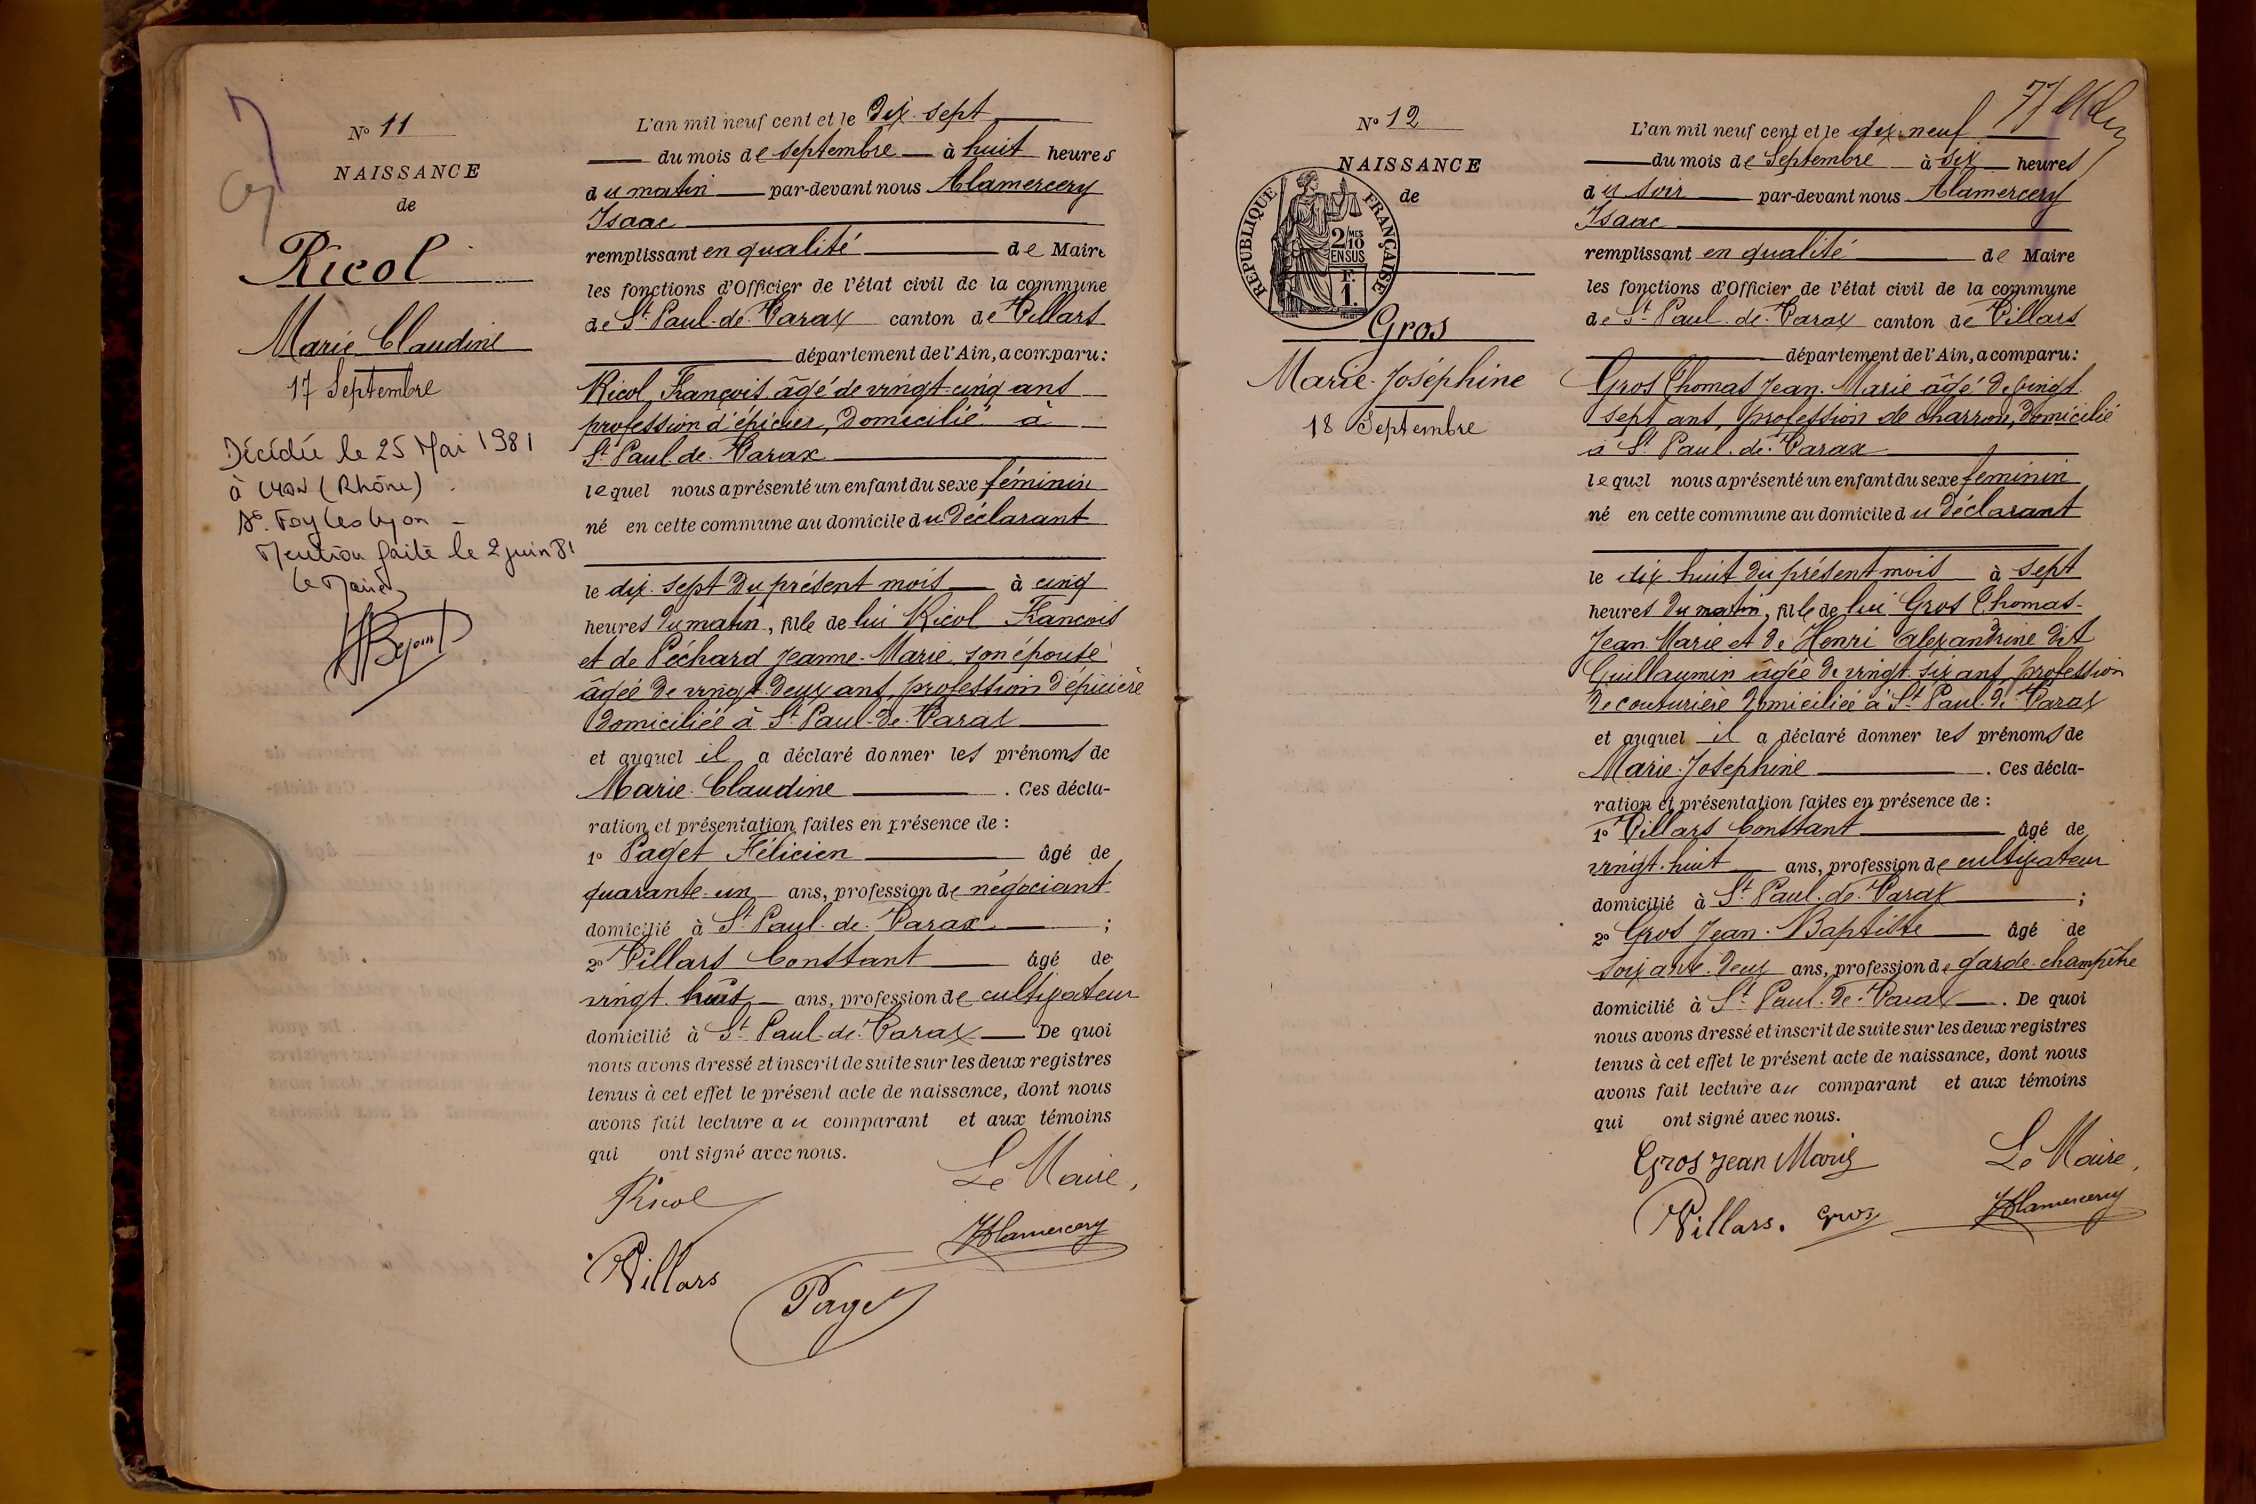 Nº 11
NAISSANCE
de
Ricol
Marie Claudine
17 Septembre
Décédée le 25 Mai 1981
à Lyon (Rhône)
Ste Foy les Lyon
Mention faite le 2 juin 81
Le Maire
L'an mil neuf cent et le Dix-sept
du mois de septembre à huit heures
du matin par-devant nous Alamercery
Isaac
remplissant en qualité de Maire
les fonctions d'Officier de l'état civil de la commune
de St Paul-de-Varax canton de Villars
département de l'Ain, a comparu:
Ricol, François âgé de vingt-cinq ans
profession d'épicier, Domicilié à
St Paul-de-Varax
lequel nous a présenté un enfant du sexe féminin
né en cette commune au domicile du Déclarant
le dix-sept Du présent mois à cinq
heures Du matin, fille de lui Ricol François
et de Péchard Jeanne-Marie son épouse
âgée De vingt-Deux ans, profession D'épicière
Domiciliée à St Paul-De-Varax
et auquel il a déclaré donner les prénoms de
Marie-Claudine. Ces décla-
ration et présentation faites en présence de :
1º Paget Félicien âgé de
quarante-un ans, profession de négociant
domicilié à St Paul-de-Varax ;
2º Villars Constant âgé de
vingt-huit ans, profession de cultivateur
domicilié à St Paul-de-Varax De quoi
nous avons dressé et inscrit de suite sur les deux registres
tenus à cet effet le présent acte de naissance, dont nous
avons fait lecture au comparant et aux témoins
qui ont signé avec nous.
Ricol
Le Maire,
Alamercery
Villars
Paget
Nº 12
NAISSANCE
de
RÉPUBLIQUE FRANÇAISE
2/10 MES
EN SUS
F.
1.
Gros
Marie-Joséphine
18 Septembre
L'an mil neuf cent et le dix-neuf
du mois de Septembre à six heures
du soir par-devant nous Alamercery
Isaac
remplissant en qualité de Maire
les fonctions d'Officier de l'état civil de la commune
de St Paul-de-Varax canton de Villars
département de l'Ain, a comparu:
Gros Thomas Jean-Marie âgé De vingt-
sept ans, profession de charron, Domicilié
à St Paul-de-Varax
lequel nous a présenté un enfant du sexe féminin
né en cette commune au domicile du Déclarant
le dix-huit Du présent mois à sept
heures Du matin, fille de lui Gros Thomas-
Jean-Marie et De Henri Alexandrine Dit
Guillaumin âgée De vingt-six ans, profession
De couturière Domiciliée à St Paul-De-Varax
et auquel il a déclaré donner les prénoms de
Marie-Joséphine. Ces décla-
ration et présentation faites en présence de :
1º Villars Constant âgé de
vingt-huit ans, profession de cultivateur
domicilié à St Paul-de-Varax ;
2º Gros Jean-Baptiste âgé de
soixante-Deux ans, profession de garde-champêtre
domicilié à St Paul-De-Varax. De quoi
nous avons dressé et inscrit de suite sur les deux registres
tenus à cet effet le présent acte de naissance, dont nous
avons fait lecture au comparant et aux témoins
qui ont signé avec nous.
Gros Jean Marie
Le Maire,
Villars. Gros
Alamercery